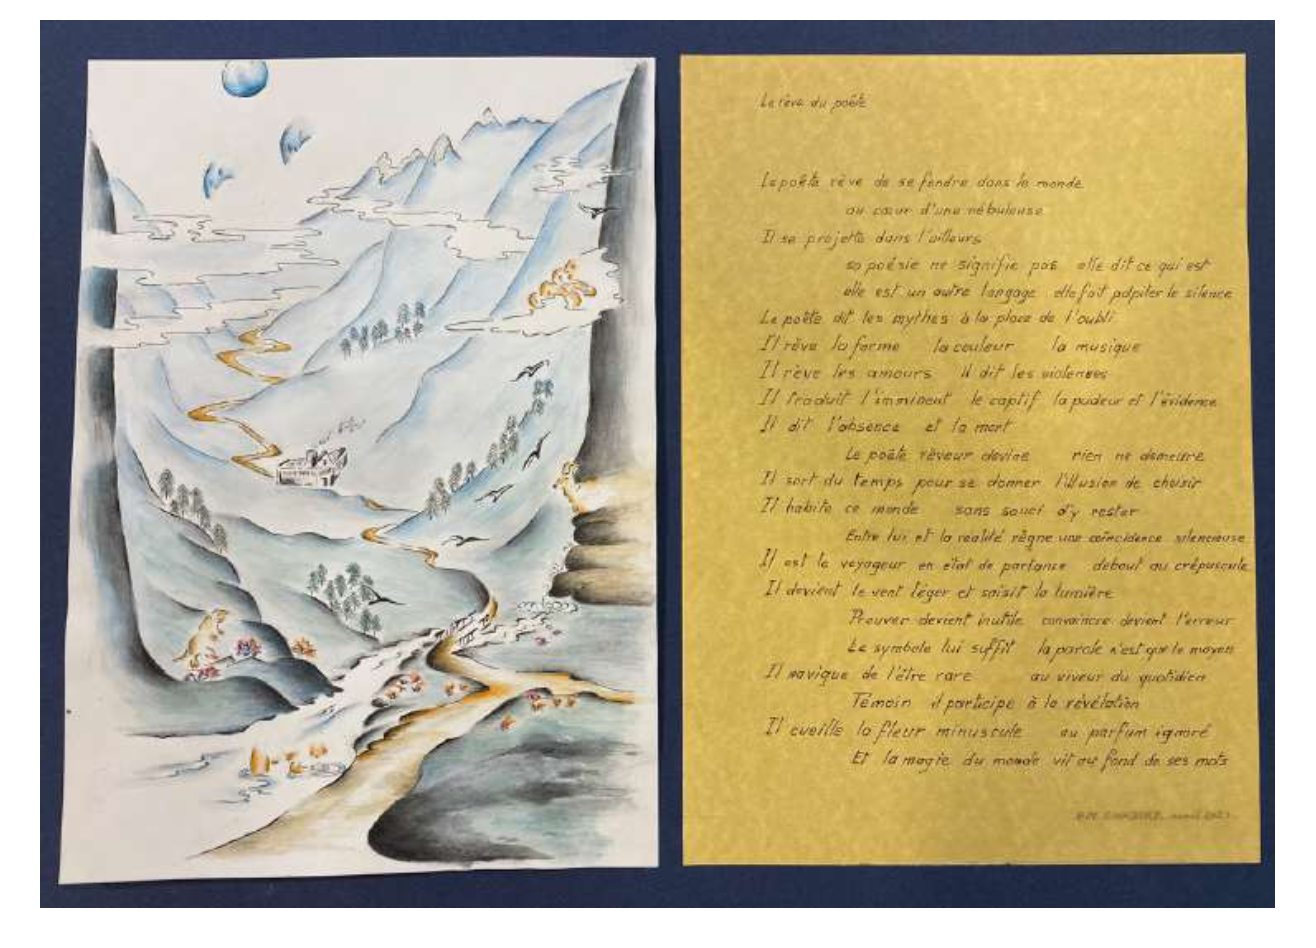 Le rêve du poète
Le poète rêve de se fondre dans le monde
au cœur d'une nébuleuse
Il se projette dans l'ailleurs
sa poésie ne signifie pas elle dit ce qui est
elle est un autre langage elle fait palpiter le silence
Le poète dit les mythes à la place de l'oubli
Il rêve la forme la couleur la musique
Il rêve les amours il dit les violences
Il traduit l'imminent le captif la pudeur et l'évidence
Il dit l'absence et la mort
Le poète rêveur devine rien ne demeure
Il sort du temps pour se donner l'illusion de choisir
Il habite ce monde sans souci d'y rester
Entre lui et la réalité règne une coïncidence silencieuse
Il est le voyageur en état de partance debout au crépuscule
Il devient le vent léger et saisit la lumière
Prouver devient inutile convaincre devient l'erreur
Le symbole lui suffit la parole n'est que le moyen
Il navigue de l'être rare au viveur du quotidien
Témoin il participe à la révélation
Il cueille la fleur minuscule au parfum ignoré
Et la magie du monde vit au fond de ses mots